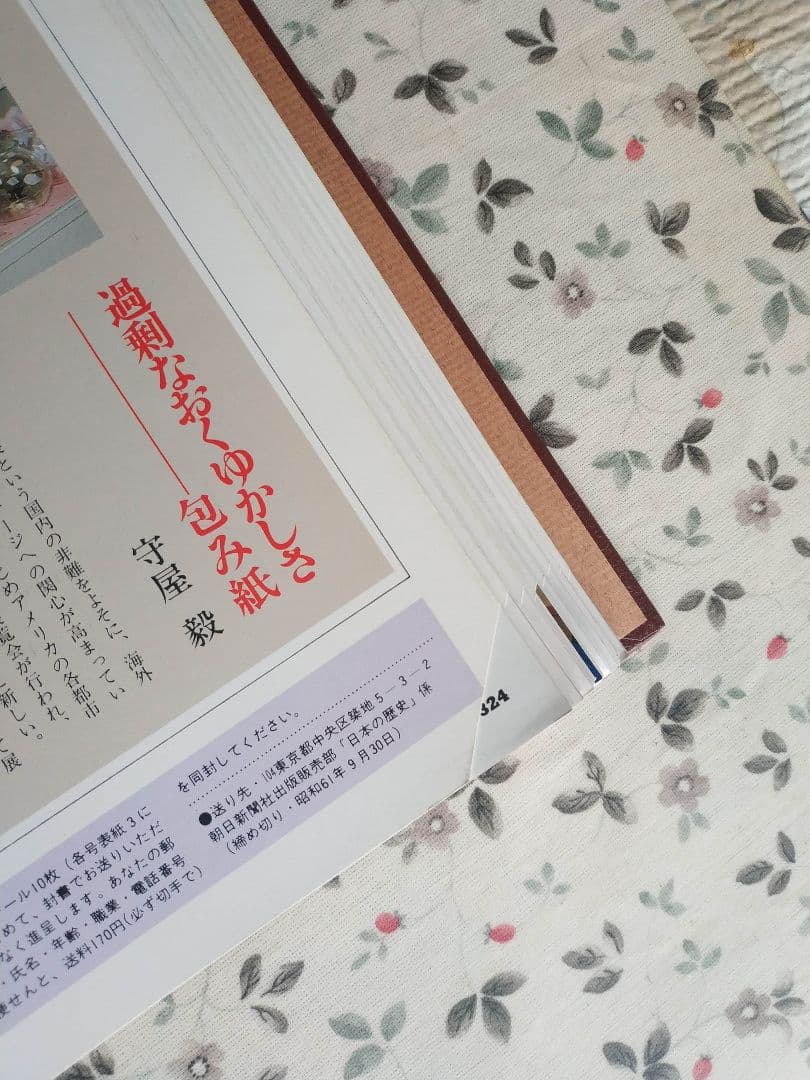 過剰なおくゆかしさ
――包み紙
守屋 毅
という国内の非難をよそに、海外
ージへの関心が高まってい
めアメリカの各都市
覧会が行われ、
新しい。
展
ール10枚（各号表紙3に
めて、封書でお送りいただ
なく進呈します。あなたの郵
・氏名・年齢・職業・電話番号
便せんと、送料170円(必ず切手で)
を同封してください。
●送り先 104東京都中央区築地5―3―2
朝日新聞社出版販売部「日本の歴史」係
（締め切り・昭和61年9月30日）
324